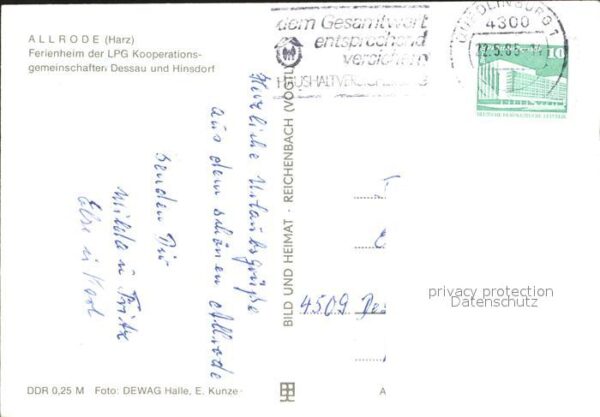 ALLRODE (Harz)
Ferienheim der LPG Kooperations-
gemeinschaften Dessau und Hinsdorf
dem Gesamtwert
entsprechend
versichern
HAUSHALTVERSICHERUNG
QUEDLINBURG 1
4300
22.5.85-14
10
DEUTSCHE DEMOKRATISCHE REPUBLIK
Herzliche Urlaubsgrüße
aus dem schönen Allrode
senden Dir
Milda u Fritz
Else u Karl
BILD UND HEIMAT · REICHENBACH (VOGTL
4509 De
privacy protection
Datenschutz
DDR 0,25 M Foto: DEWAG Halle, E. Kunze
A